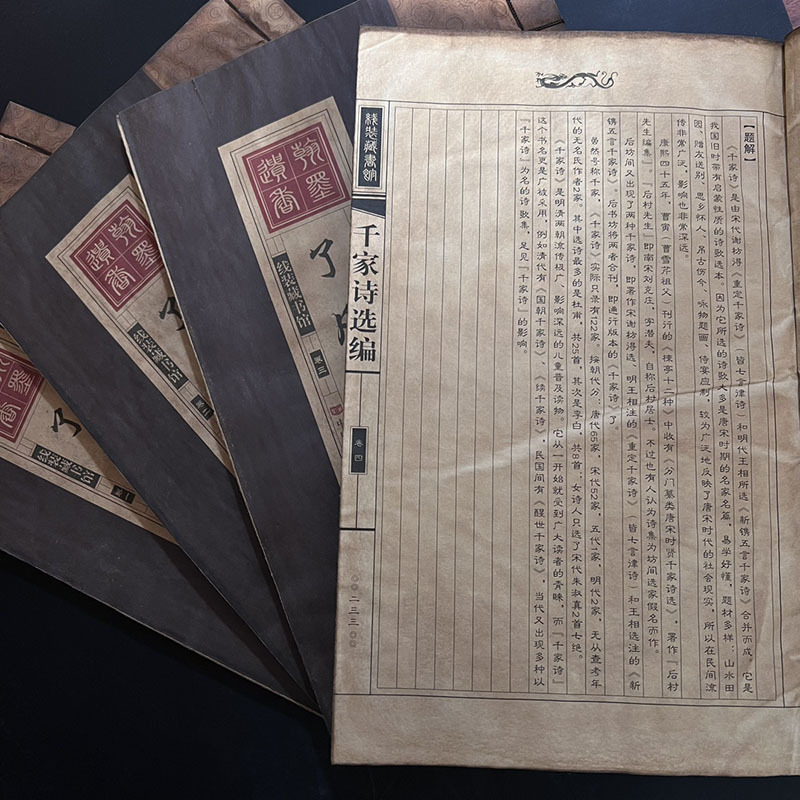 【题解】
《千家诗》是由宋代谢枋得《重定千家诗》（皆七言律诗）和明代王相所选《新镌五言千家诗》合并而成。它是
我国旧时带有启蒙性质的诗歌选本。因为它所选的诗歌大多是唐宋时期的名家名篇，易学好懂，题材多样：山水田
园、赠友送别、思乡怀人、吊古伤今、咏物题画、侍宴应制，较为广泛地反映了唐宋时代的社会现实，所以在民间流
传非常广泛，影响也非常深远。
康熙四十五年，曹寅（曹雪芹祖父）刊行的《楝亭十二种》中收有《分门纂类唐宋时贤千家诗选》，署作『后村
先生编集』。『后村先生』即南宋刘克庄，字潜夫，自称后村居士。不过也有人认为诗集为坊间选家假名而作。
后坊间又出现了两种千家诗，即署作宋谢枋得选、明王相注的《重定千家诗》（皆七言律诗）和王相选注的《新
镌五言千家诗》。后书坊将两者合刊，即通行版本的《千家诗》了。
虽然号称千家，《千家诗》实际只录有122家，按朝代分：唐代65家，宋代52家，五代1家，明代2家，无从查考年
代的无名氏作者2家。其中选诗最多的是杜甫，共25首，其次是李白，共8首；女诗人只选了宋代朱淑真2首七绝。
《千家诗》是明清两朝流传极广、影响深远的儿童普及读物。它从一开始就受到广大读者的青睐，而『千家诗』
这个书名更是广被采用，例如清代有《国朝千家诗》、《续千家诗》，民国间有《醒世千家诗》，当代又出现多种以
『千家诗』为名的诗歌集，足见『千家诗』的影响。
线装藏书馆
千家诗选编
卷四
二三三
翰墨
遗香
线装藏书馆
卷三
翰墨
遗香
线装藏书馆
卷二
线装藏书馆
卷一